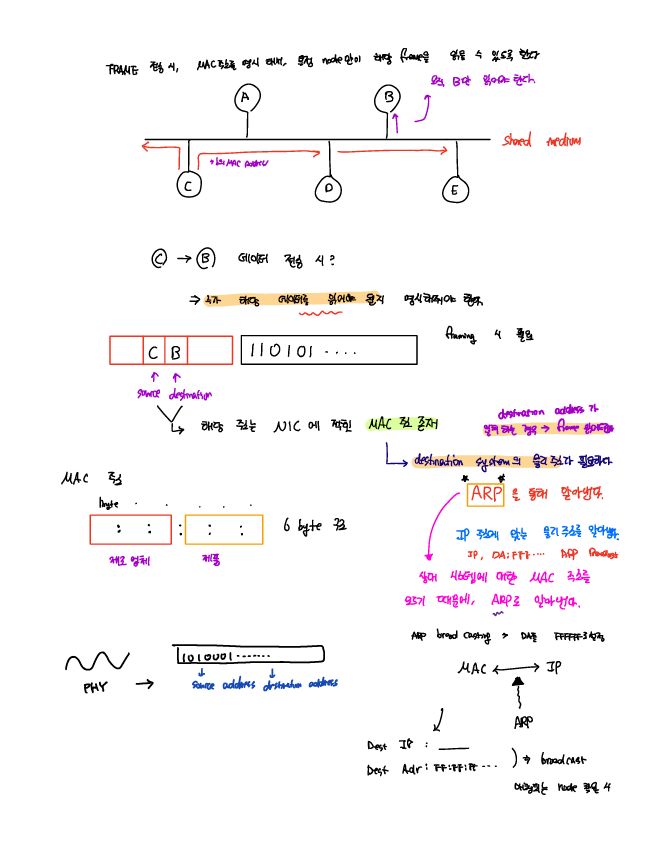 FRAME 전송 시, MAC 주소를 명시해서, 특정 node만이 해당 frame을 읽을 수 있도록 한다
오직 B만 읽어야 한다.
A
B
shared medium
C
D
E
C → B 데이터 전송 시?
⇒ 누가 해당 데이터를 읽어야 할지 명시해줘야 한다.
framing 시 필요
C B
110101 ....
source destination
해당 주소는 NIC에 적힌 MAC 주소 존재
destination address가
일치하는 경우 → frame
destination system의 물리주소가 필요하다
ARP을 통해 알아낸다.
MAC 주소
1byte
: : : : :
6 byte 주소
제조업체 제품
IP 주소에 맞는 물리 주소를 알아낸다.
IP, DA: FF: ···· ARP
상대 시스템에 대한 MAC 주소를
모르기 때문에, ARP로 알아낸다.
ARP broadcasting > DA를
MAC ↔ IP
ARP
PHY →
1010001 .......
source address destination address
Dest IP :
Dest Adr : FF:FF:FF ···
⇒ broadcast
node